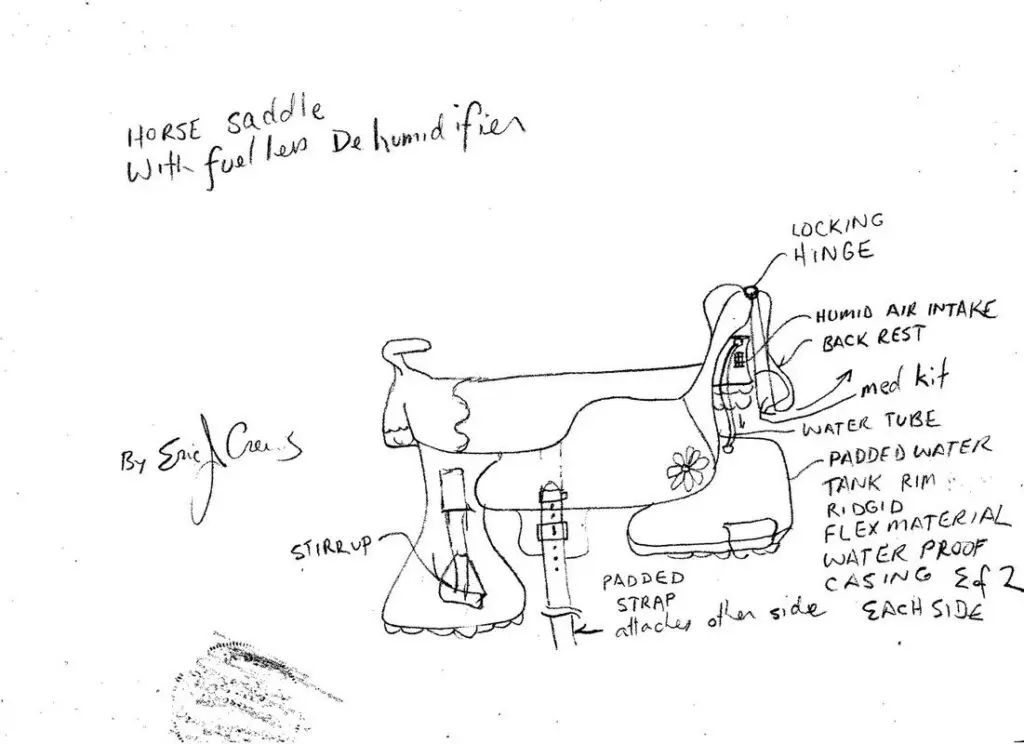 HORSE saddle
With fuelless Dehumidifier
LOCKING
HINGE
HUMID AIR INTAKE
BACK REST
med kit
WATER TUBE
By Eric
PADDED WATER
TANK RIM
RIDGID
FLEX MATERIAL
WATER PROOF
CASING
EACH SIDE
STIRRUP
PADDED
STRAP
attaches other side